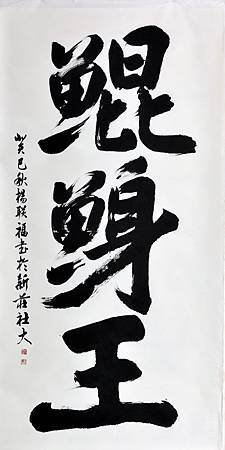 鯤鯓王
癸巳秋楊联福書於新莊社大